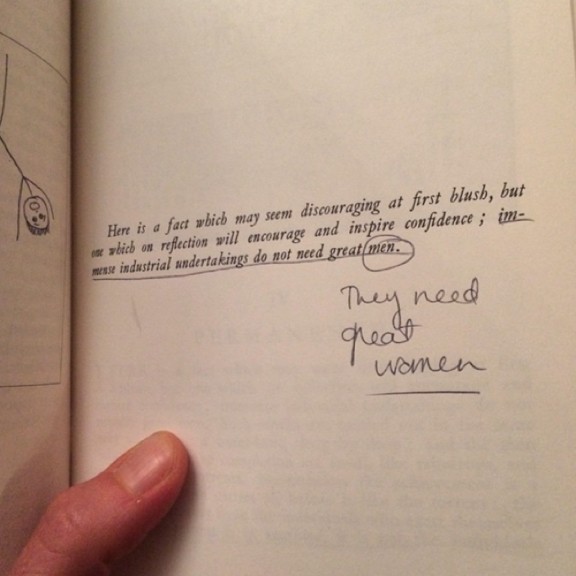 Here is a fact which may seem discouraging at first blush, but
one which on reflection will encourage and inspire confidence ; im-
mense industrial undertakings do not need great men.
They need
great
women